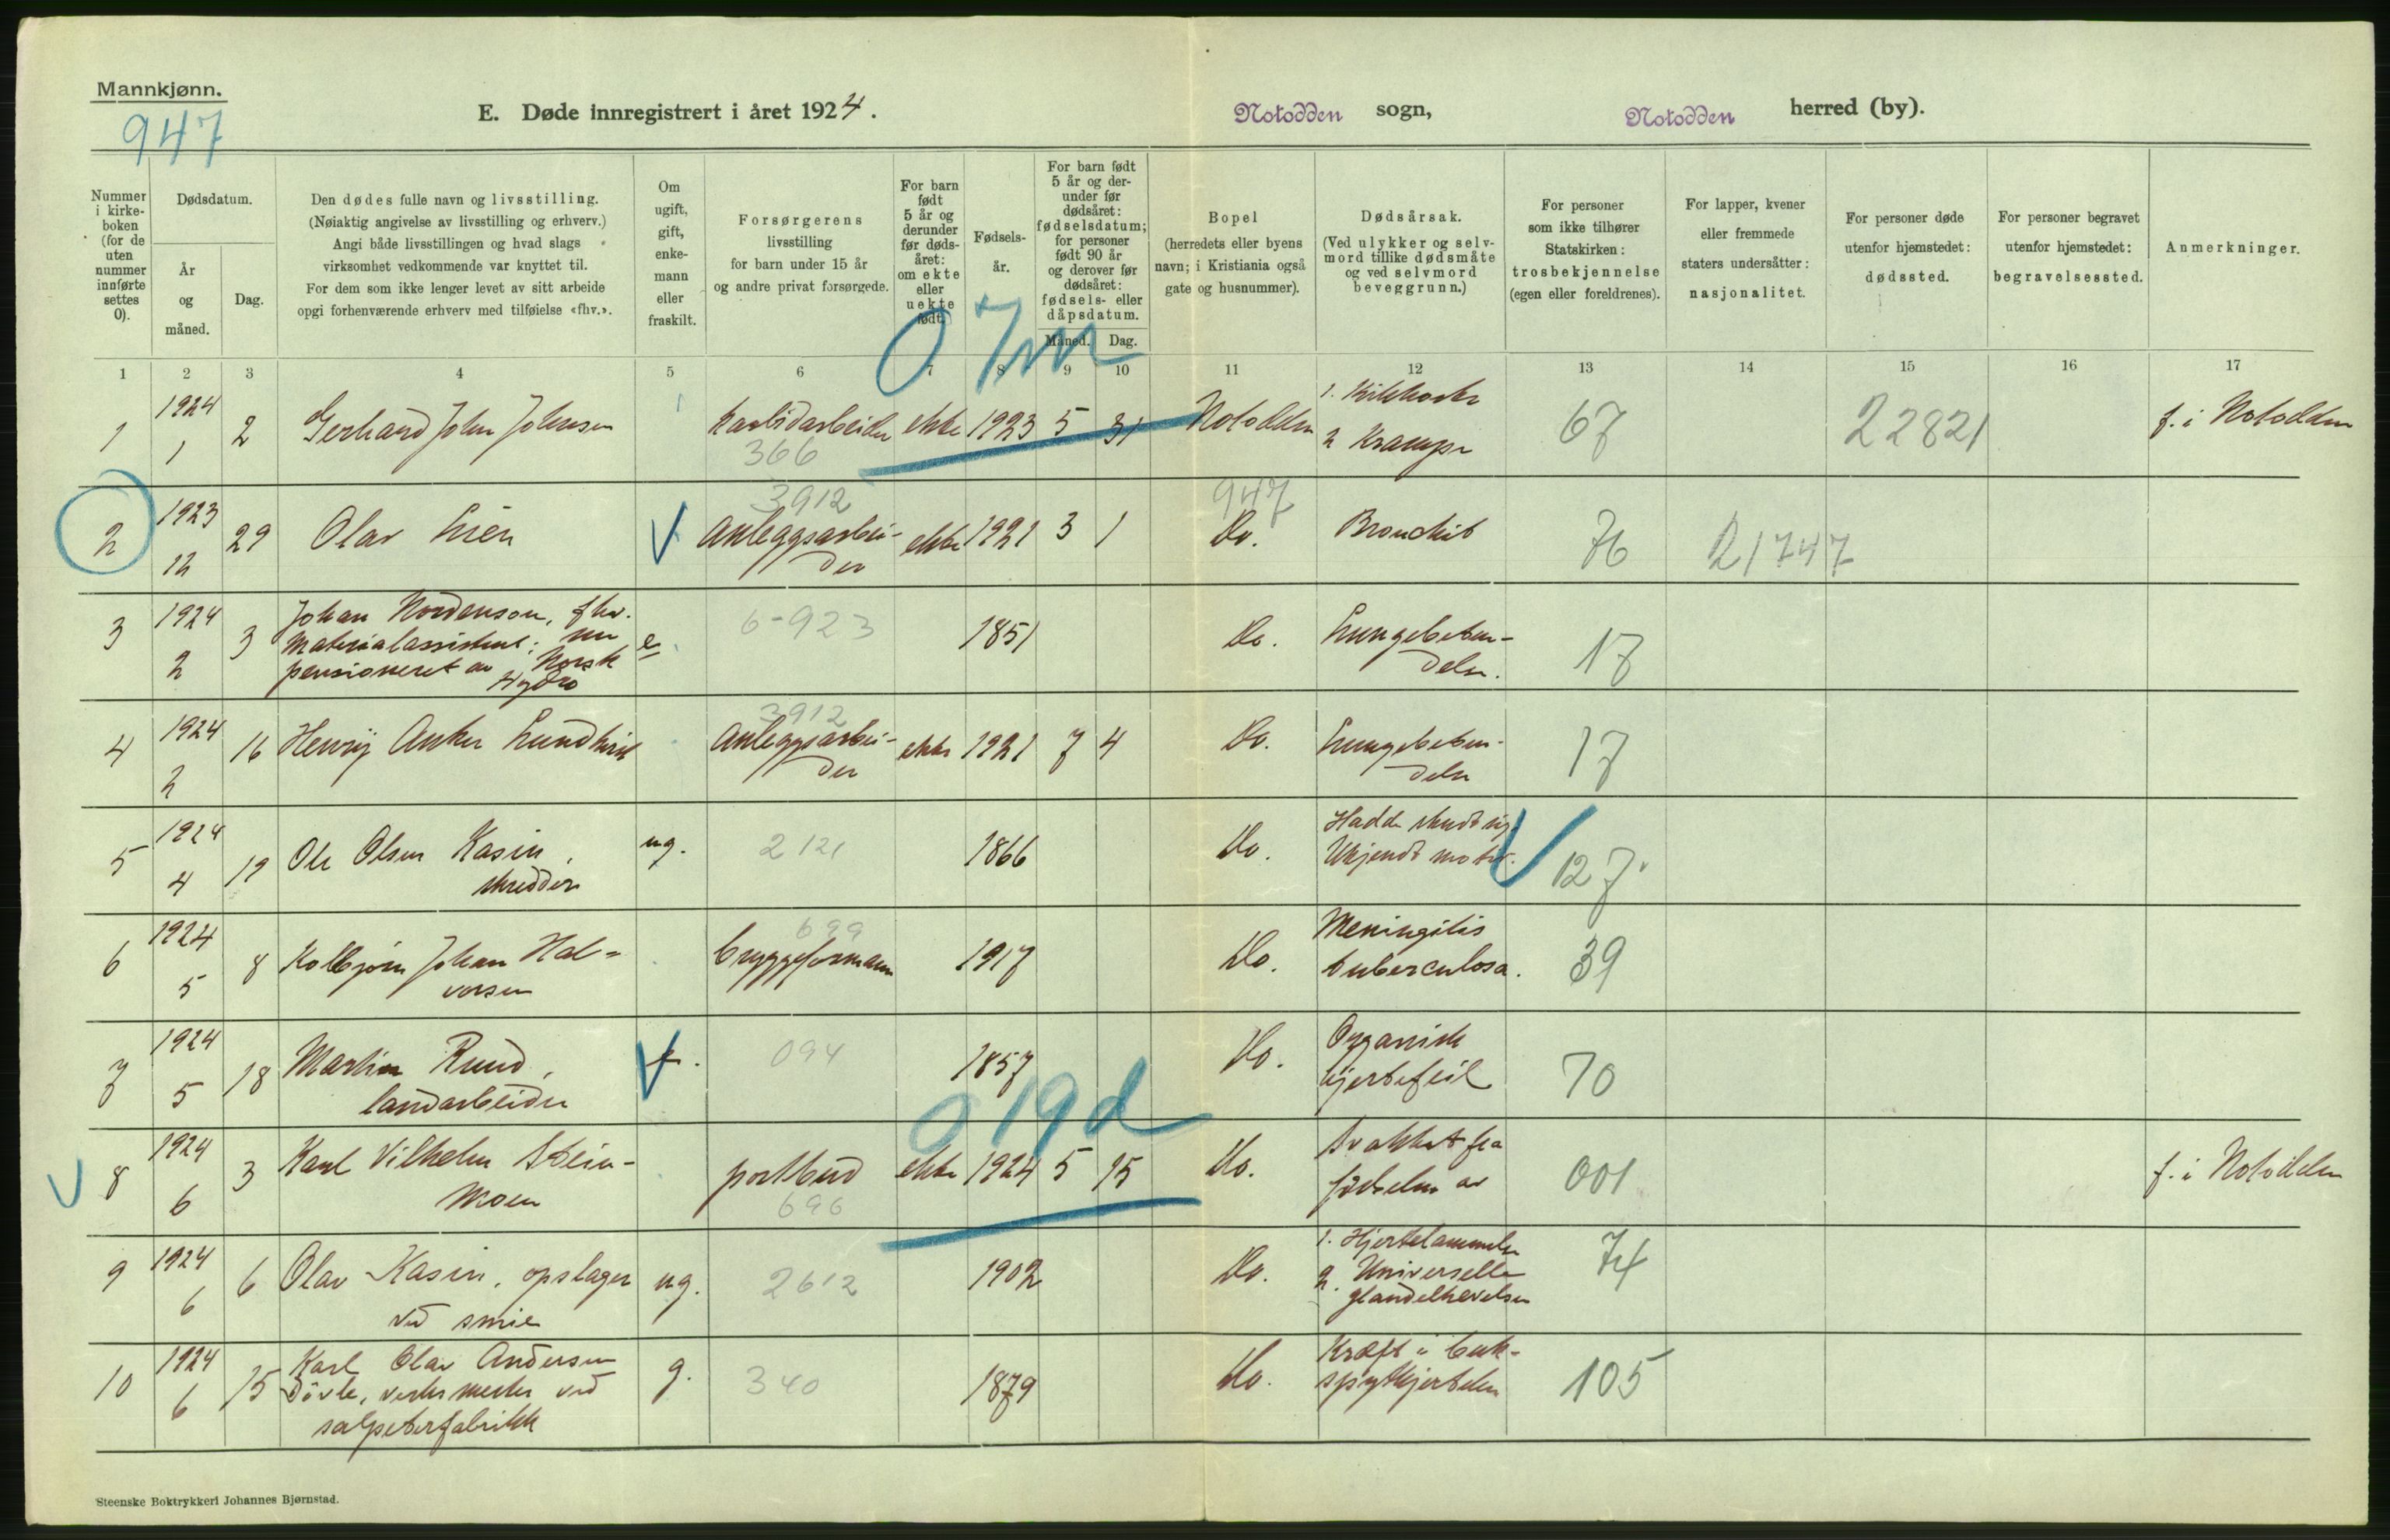 Mannkjønn.
947
E. Døde innregistrert i året 1924.
Notodden sogn,
Notodden herred (by).
Nummer i kirke- boken (for de uten nummer innførte settes 0).
Dødsdatum.
År og måned.
Dag.
Den dødes fulle navn og livsstilling.
(Nøiaktig angivelse av livsstilling og erhverv.)
Angi både livsstillingen og hvad slags
virksomhet vedkommende var knyttet til.
For dem som ikke lenger levet av sitt arbeide
opgi forhenværende erhverv med tilføielse «fhv.».
Om ugift, gift, enke- mann eller fraskilt.
Forsørgerens
livsstilling
for barn under 15 år
og andre privat forsørgede.
For barn født 5 år og derunder før døds- året: om ekte eller uekte født.
Fødsels- år.
For barn født 5 år og der- under før dødsåret: fødselsdatum; for personer født 90 år og derover før dødsåret: fødsels- eller dåpsdatum.
Måned. Dag.
Bopel
(herredets eller byens
navn; i Kristiania også
gate og husnummer).
Dødsårsak.
(Ved ulykker og selv-
mord tillike dødsmåte
og ved selvmord
beveggrunn.)
For personer
som ikke tilhører
Statskirken:
trosbekjennelse
(egen eller foreldrenes).
For lapper, kvener
eller fremmede
staters undersåtter:
nasjonalitet.
For personer døde
utenfor hjemstedet:
dødssted.
For personer begravet
utenfor hjemstedet:
begravelsessted.
Anmerkninger.
1 2 3 4 5 6 7 8 9 10 11 12 13 14 15 16 17
0 7m
1 1924 1 2 Gerhard John Johnsen karbidarbeider 366 ekte 1923 5 31 Notodden 1. Kikhoste 2 Krampe 67 22821 f. i Notodden
2 1923 12 29 Olav Lien 3912 Anleggsarbei- der ekte 1921 3 1 947 Do. Bronchit 76 21747
3 1924 2 3 Johan Nordenson, fhv.
materialassistent; nu
pensioneret av Norsk
Hydro
e. 6-923 1851 Do. Lungebeten- delse. 17
4 1924 2 16 Henrij Anker Lundkvist 3912 Anleggsarbei- der ekte 1921 7 4 Do. Lungebeten- delse 17
5 1924 4 19 Ole Olsen Kasin,
skredder
ug. 2121 1866 Do. Hadde skudt sig.
Ukjendt motiv. 127
6 1924 5 8 Kolbjørn Johan Hal-
vorsen
699 bryggeformann 1917 Do. Meningitis
tuberculosa. 39
7 1924 5 18 Martin Ruud,
landarbeider
094 1857 Do. Organisk
hjertefeil 70
0 19d
8 1924 6 3 Karl Vilhelm Stein-
moen
postbud 696 ekte 1924 5 15 Do. Svakhet fra
fødselen av 001 f. i Notodden
9 1924 6 6 Olav Kasin, opslager
ved smie
ug. 2612 1902 Do. 1. Hjertelammelse
2. Universelle
glandelhevelser 74
10 1924 6 15 Karl Olav Andersen
Døvle, verksmester ved
salpeterfabrikk
g. 340 1879 Do. Kræft i buk-
spytkjertelen 105
Steenske Boktrykkeri Johannes Bjørnstad.